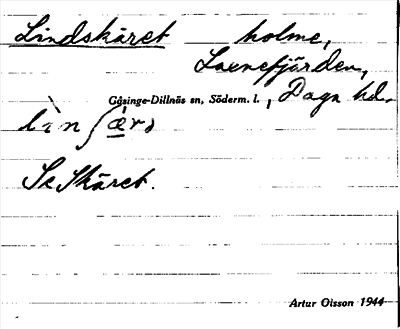 Lindskäret holme,
Lacnefjärden,
Gåsinge-Dillnäs sn, Söderm. l., Daga hd.
Se Skäret.
Artur Olsson 1944